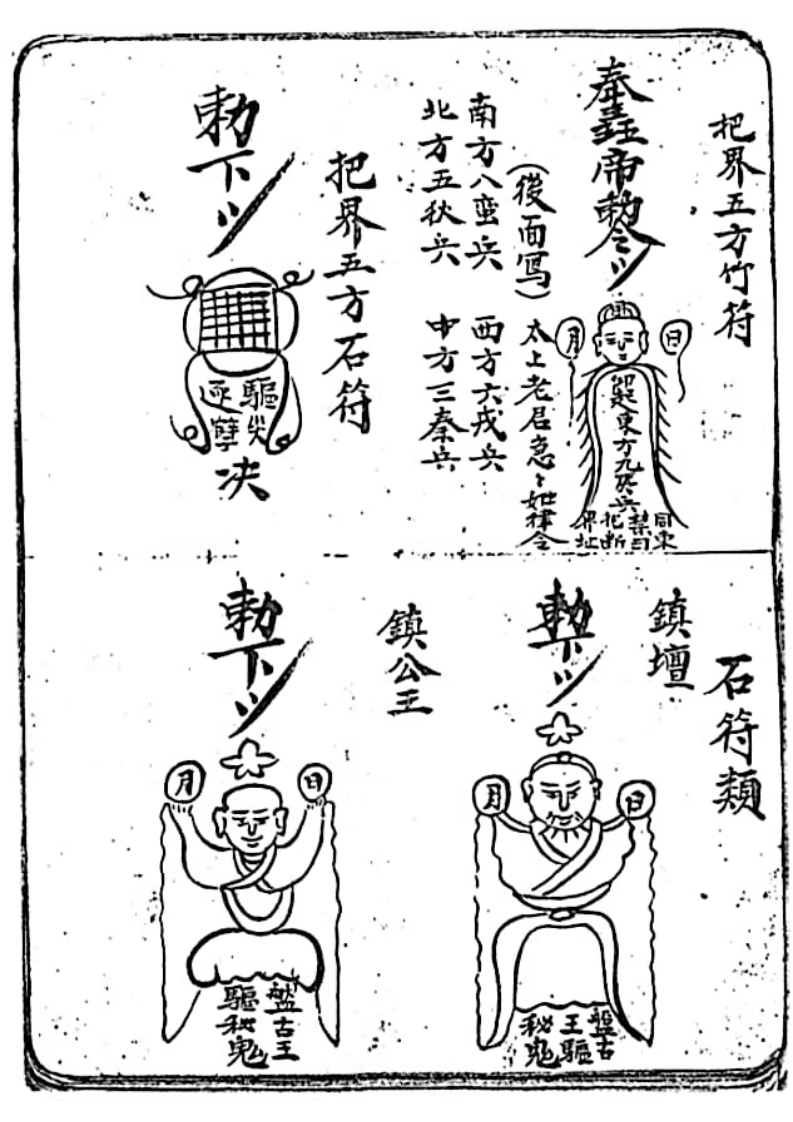 把界五方竹符
奉玉帝勅令
月
日
東方九夷兵
同東
禁司
把断
界址
太上老君急々如律令
(後面写)
南方八蛮兵 西方六戎兵
北方五狄兵 中方三秦兵
把界五方石符
勅下
驅
逐
决
石符類
鎮壇
勅下
月
日
盤古
王驅
秘鬼
鎮公王
勅下
月
日
盤古王
驅秘鬼